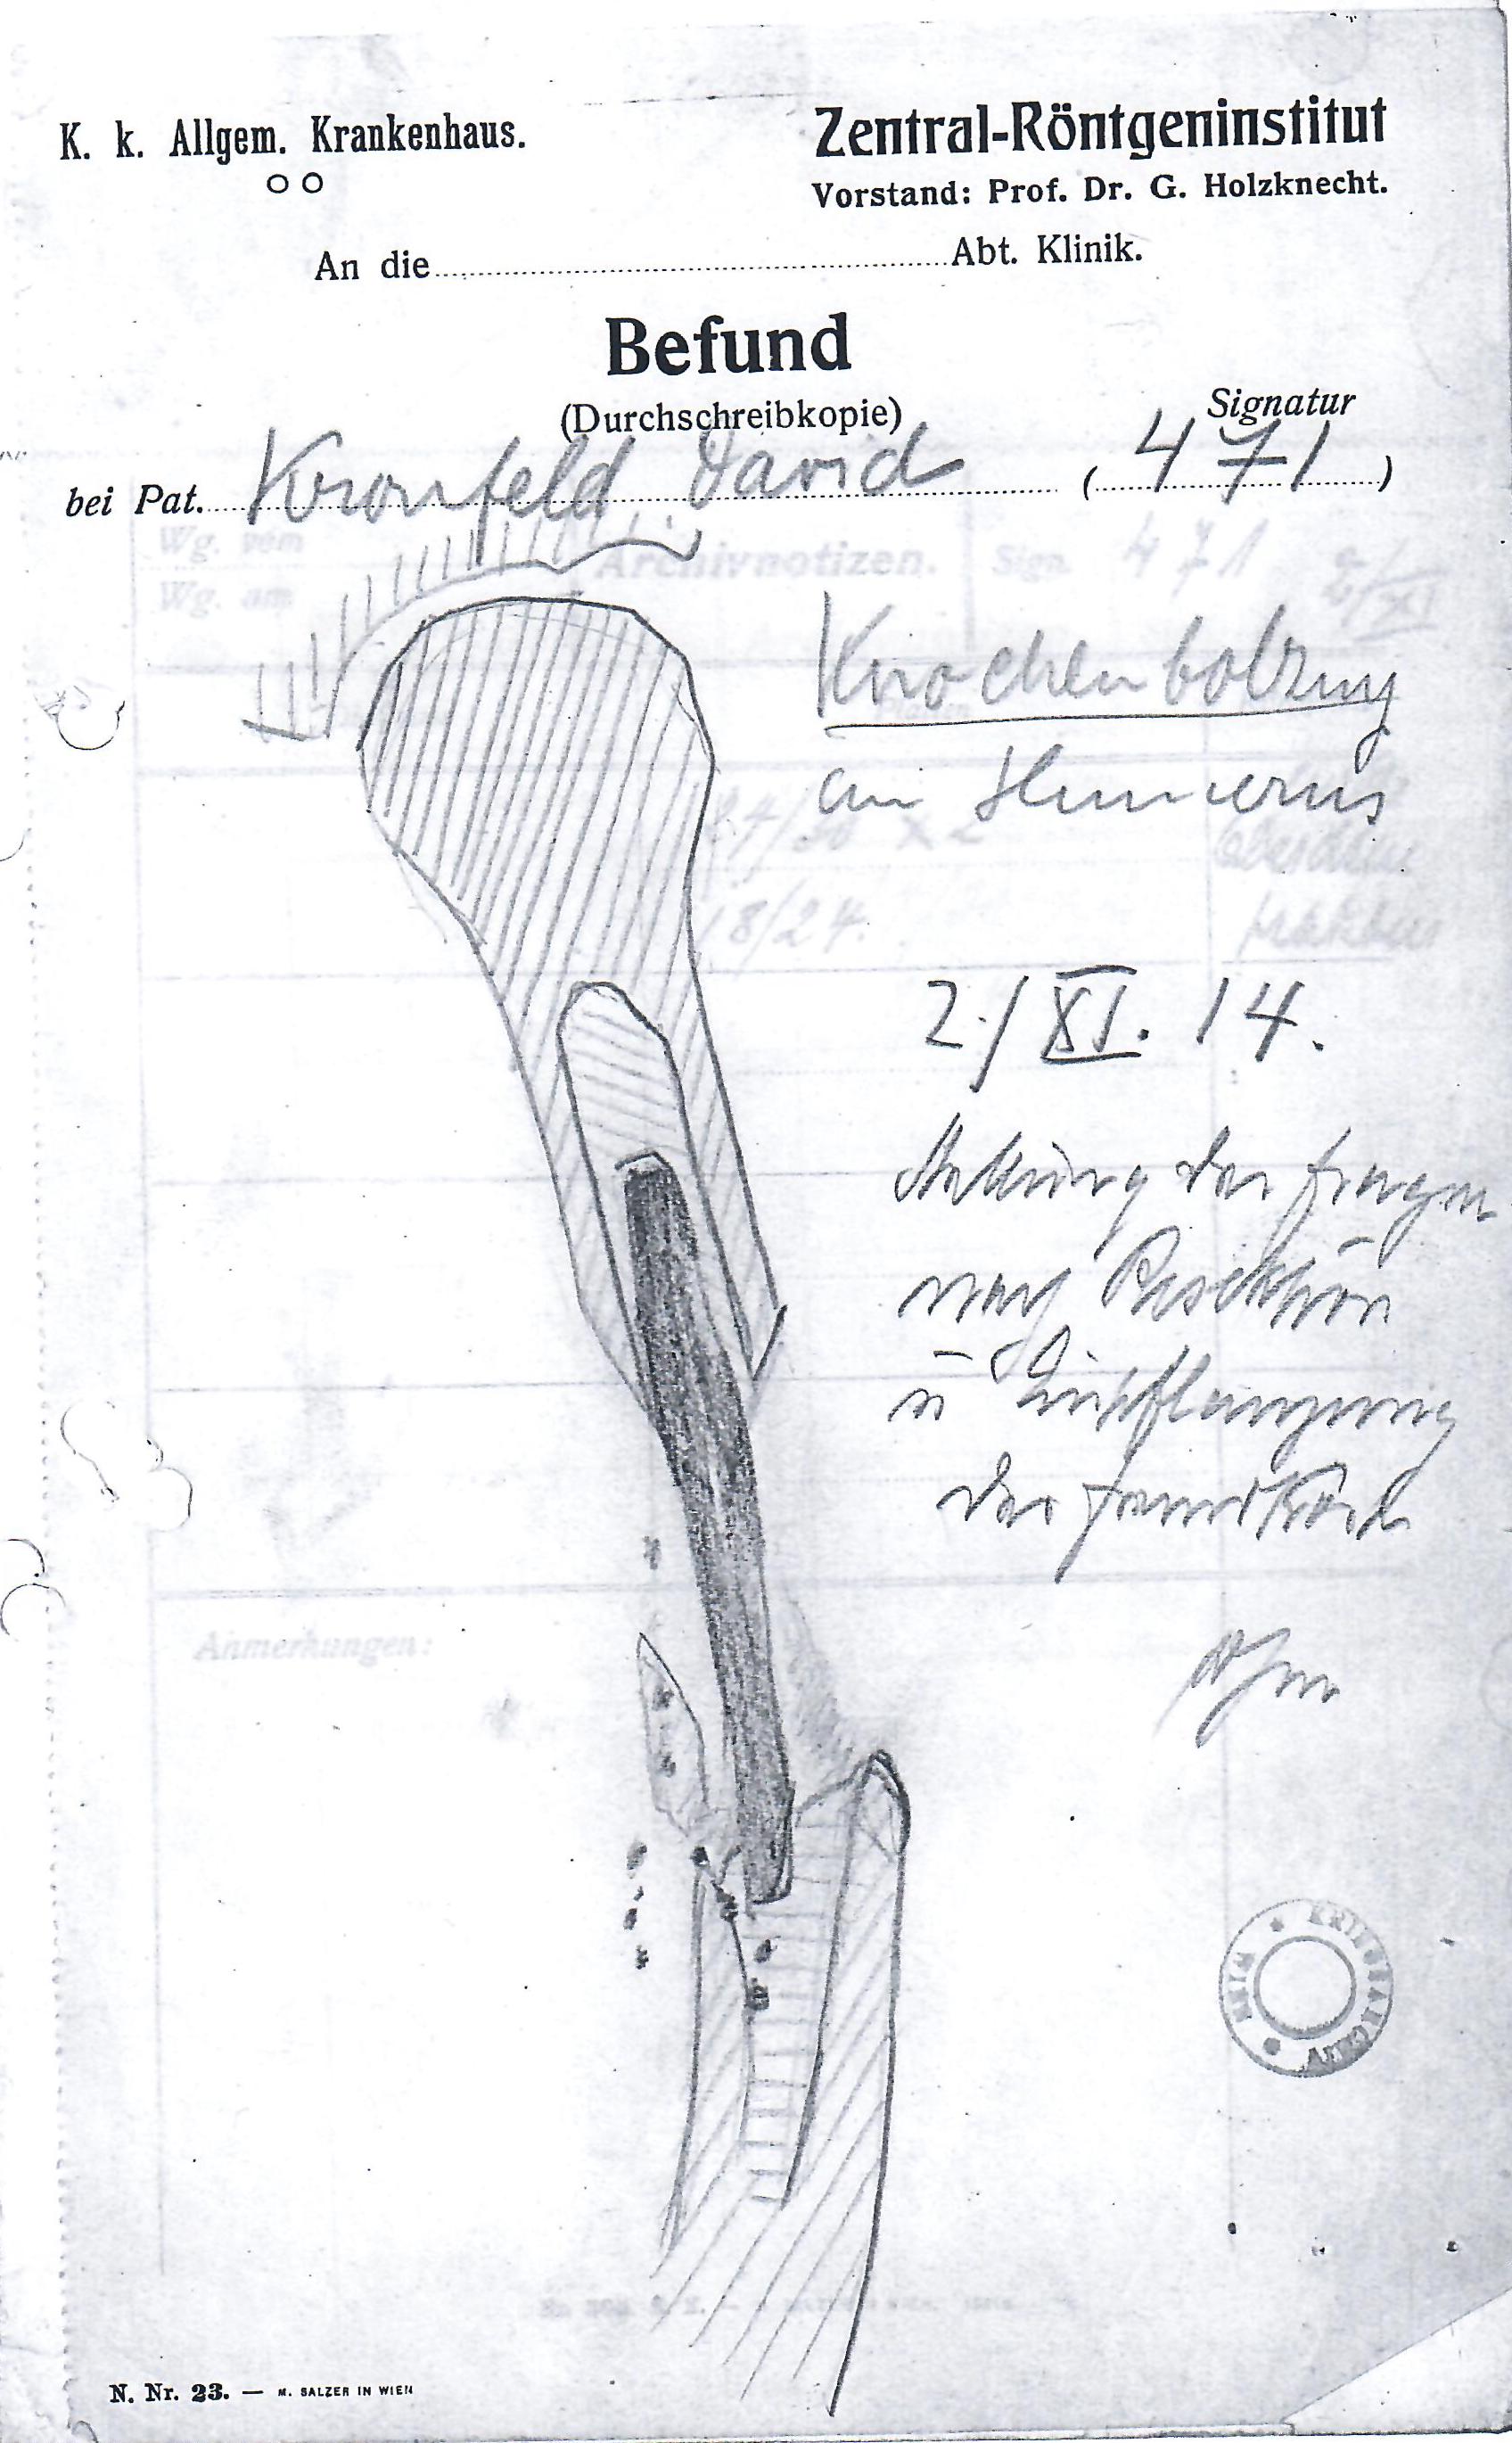 K. k. Allgem. Krankenhaus.
Zentral-Röntgeninstitut
Vorstand: Prof. Dr. G. Holzknecht.
An die Abt. Klinik.
Befund
(Durchschreibkopie)
Signatur
bei Pat. Kronfeld David (471)
Wg. vom
Archivnotizen.
Sign. 471
Wg. am
Knochenbolzung
am Humerus
18/24.
2/XI. 14.
Stellung der
nach Resektion
u Einpflanzung
der
Anmerkungen:
KRIEGSARCHIV WIEN
N. Nr. 23. — M. SALZER IN WIEN